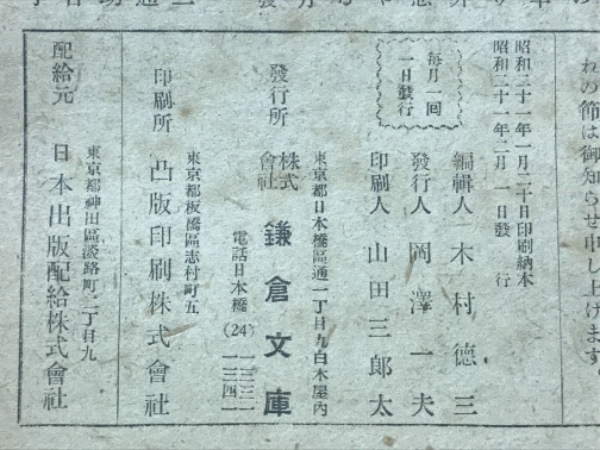 れの節は御知らせ申し上げます。
昭和二十一年一月二十日印刷納本
昭和二十一年二月一日發行
毎月一回
一日發行
編輯人 木村德三
發行人 岡澤一夫
印刷人 山田三郎太
東京都日本橋區通一丁目九白木屋内
發行所 株式會社 鎌倉文庫
電話日本橋(24)
東京都板橋區志村町五
印刷所 凸版印刷株式會社
東京都神田區淡路町二丁目九
配給元 日本出版配給株式會社